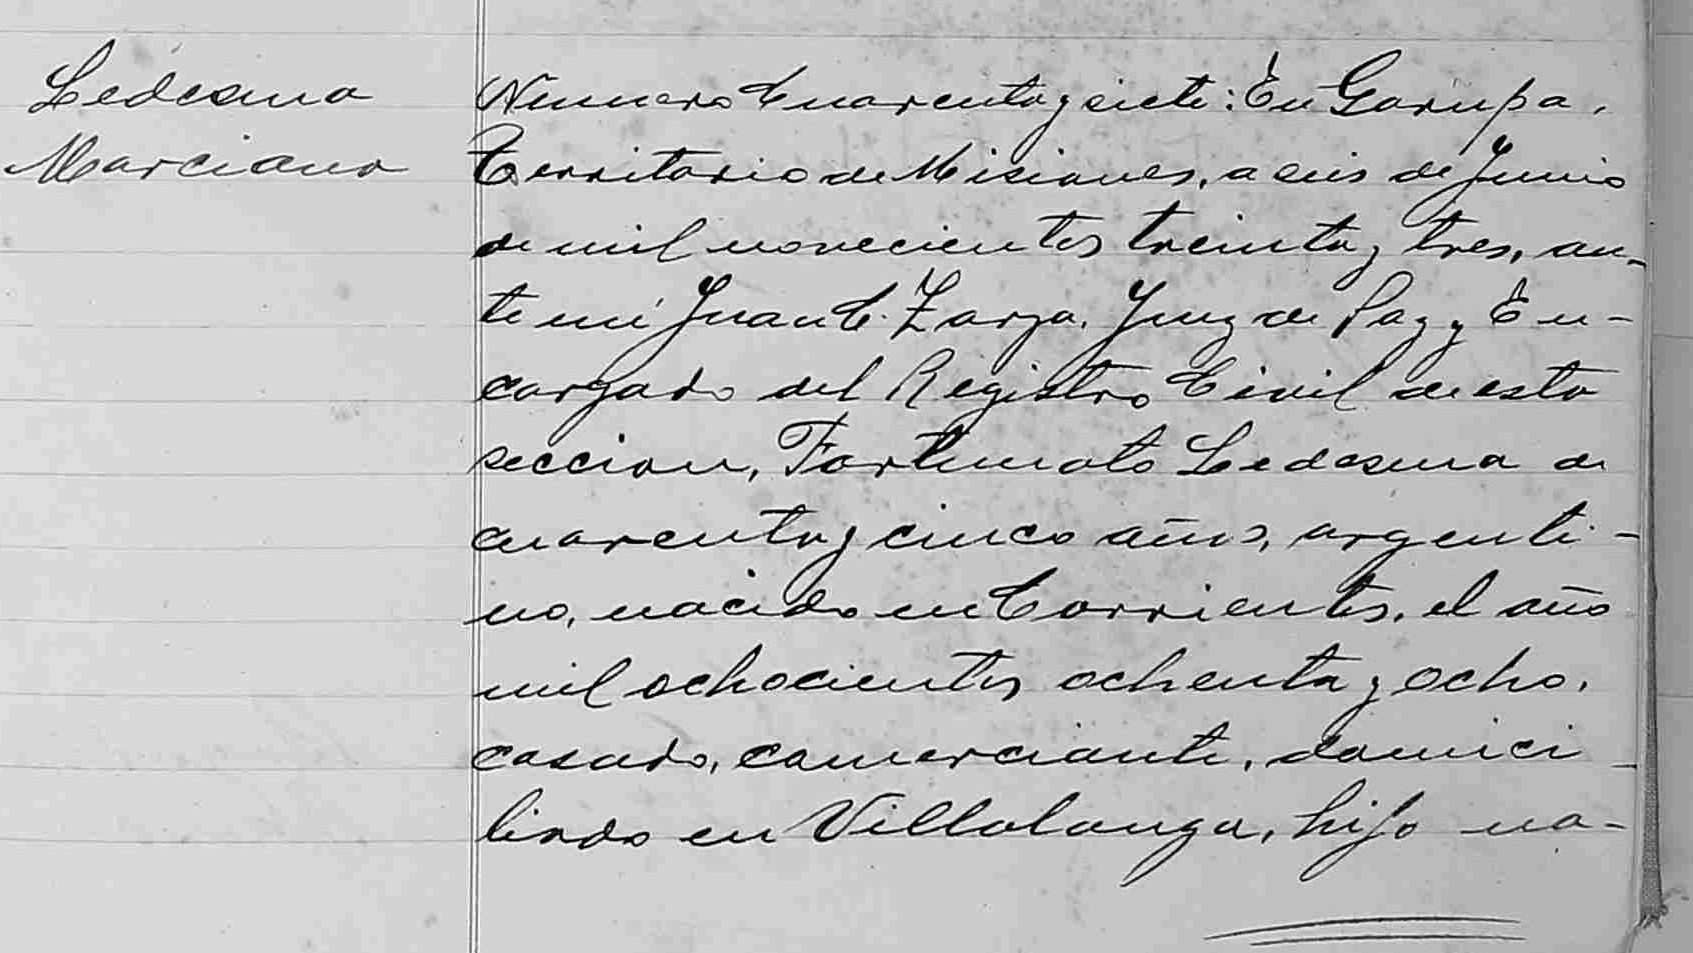 Ledesma
Marciano
Numero Cuarenta y siete: En Garupa,
Territorio de Misiones, a seis de Junio
de mil novecientos treinta y tres, an-
te mi Juan C. Zarza. Juez de Paz y En-
cargado del Registro Civil de esta
seccion, Fortunato Ledesma de
cuarenta y cinco años, argenti-
no, nacido en Corrientes, el año
mil ochocientos ochenta y ocho,
casado, comerciante, domici-
liado en Villalonga, hijo na-